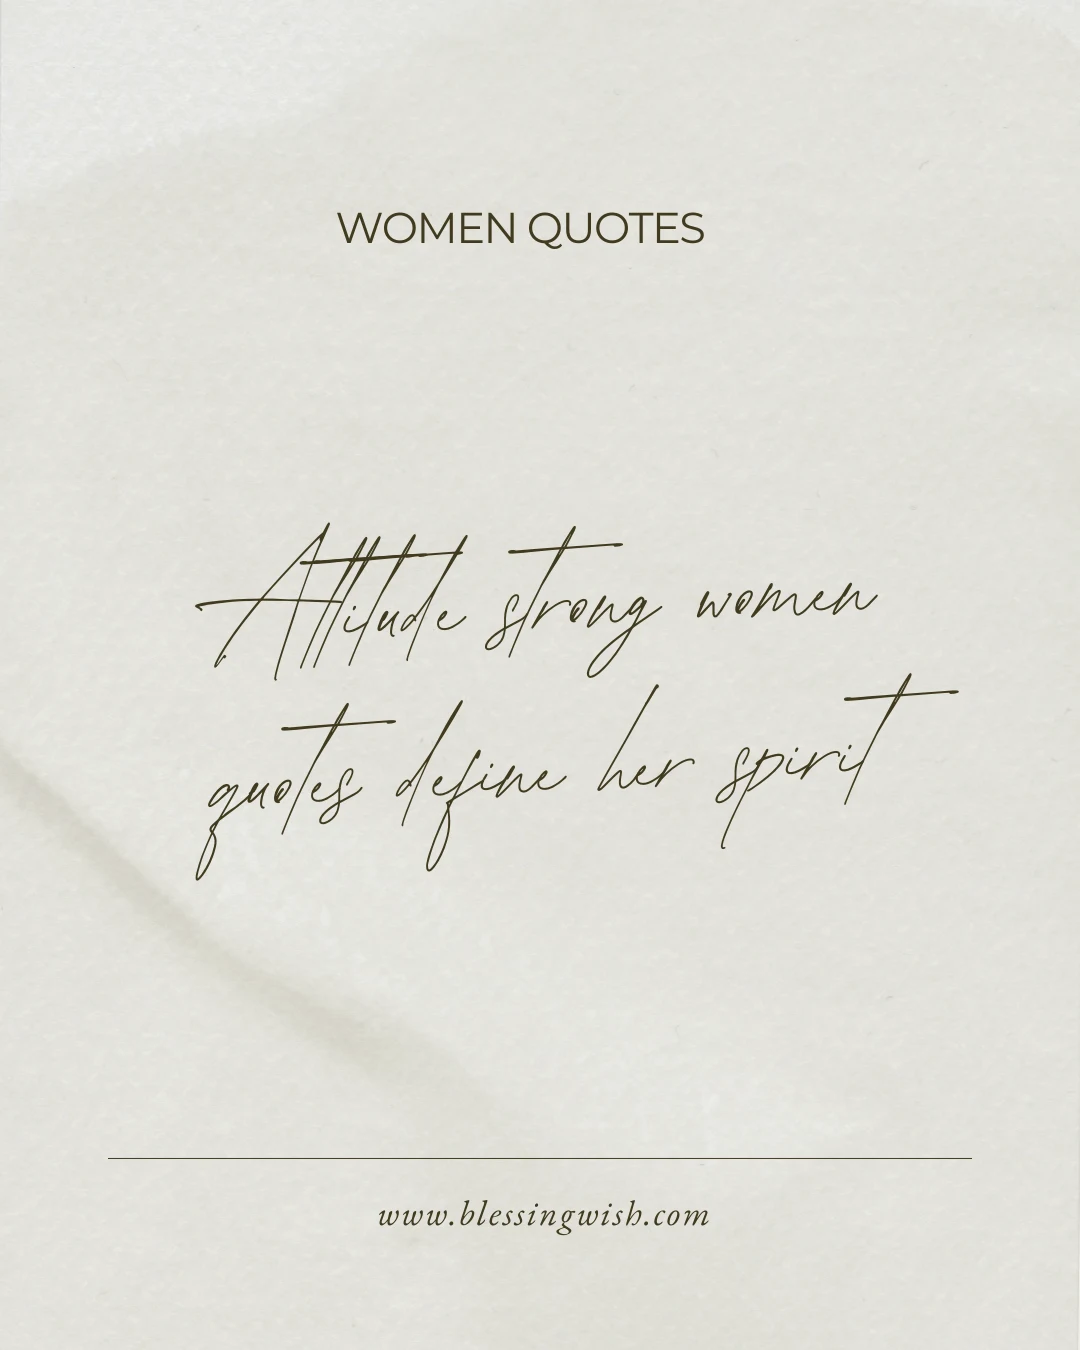 WOMEN QUOTES
Attitude strong women
quotes define her spirit
www.blessingwish.com